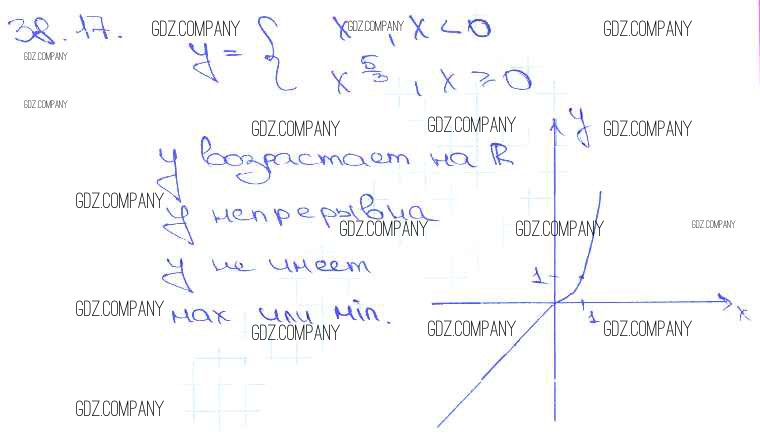 38.17. GDZ.COMPANY GDZ.COMPANY GDZ.COMPANY
y = { x, x < 0
GDZ.COMPANY
x^(5/3), x ≥ 0
GDZ.COMPANY
GDZ.COMPANY GDZ.COMPANY y GDZ.COMPANY
y возрастает на R
GDZ.COMPANY
y непрерывна
GDZ.COMPANY GDZ.COMPANY GDZ.COMPANY
y не имеет 1
GDZ.COMPANY
max или min. 1 x
GDZ.COMPANY GDZ.COMPANY GDZ.COMPANY
GDZ.COMPANY